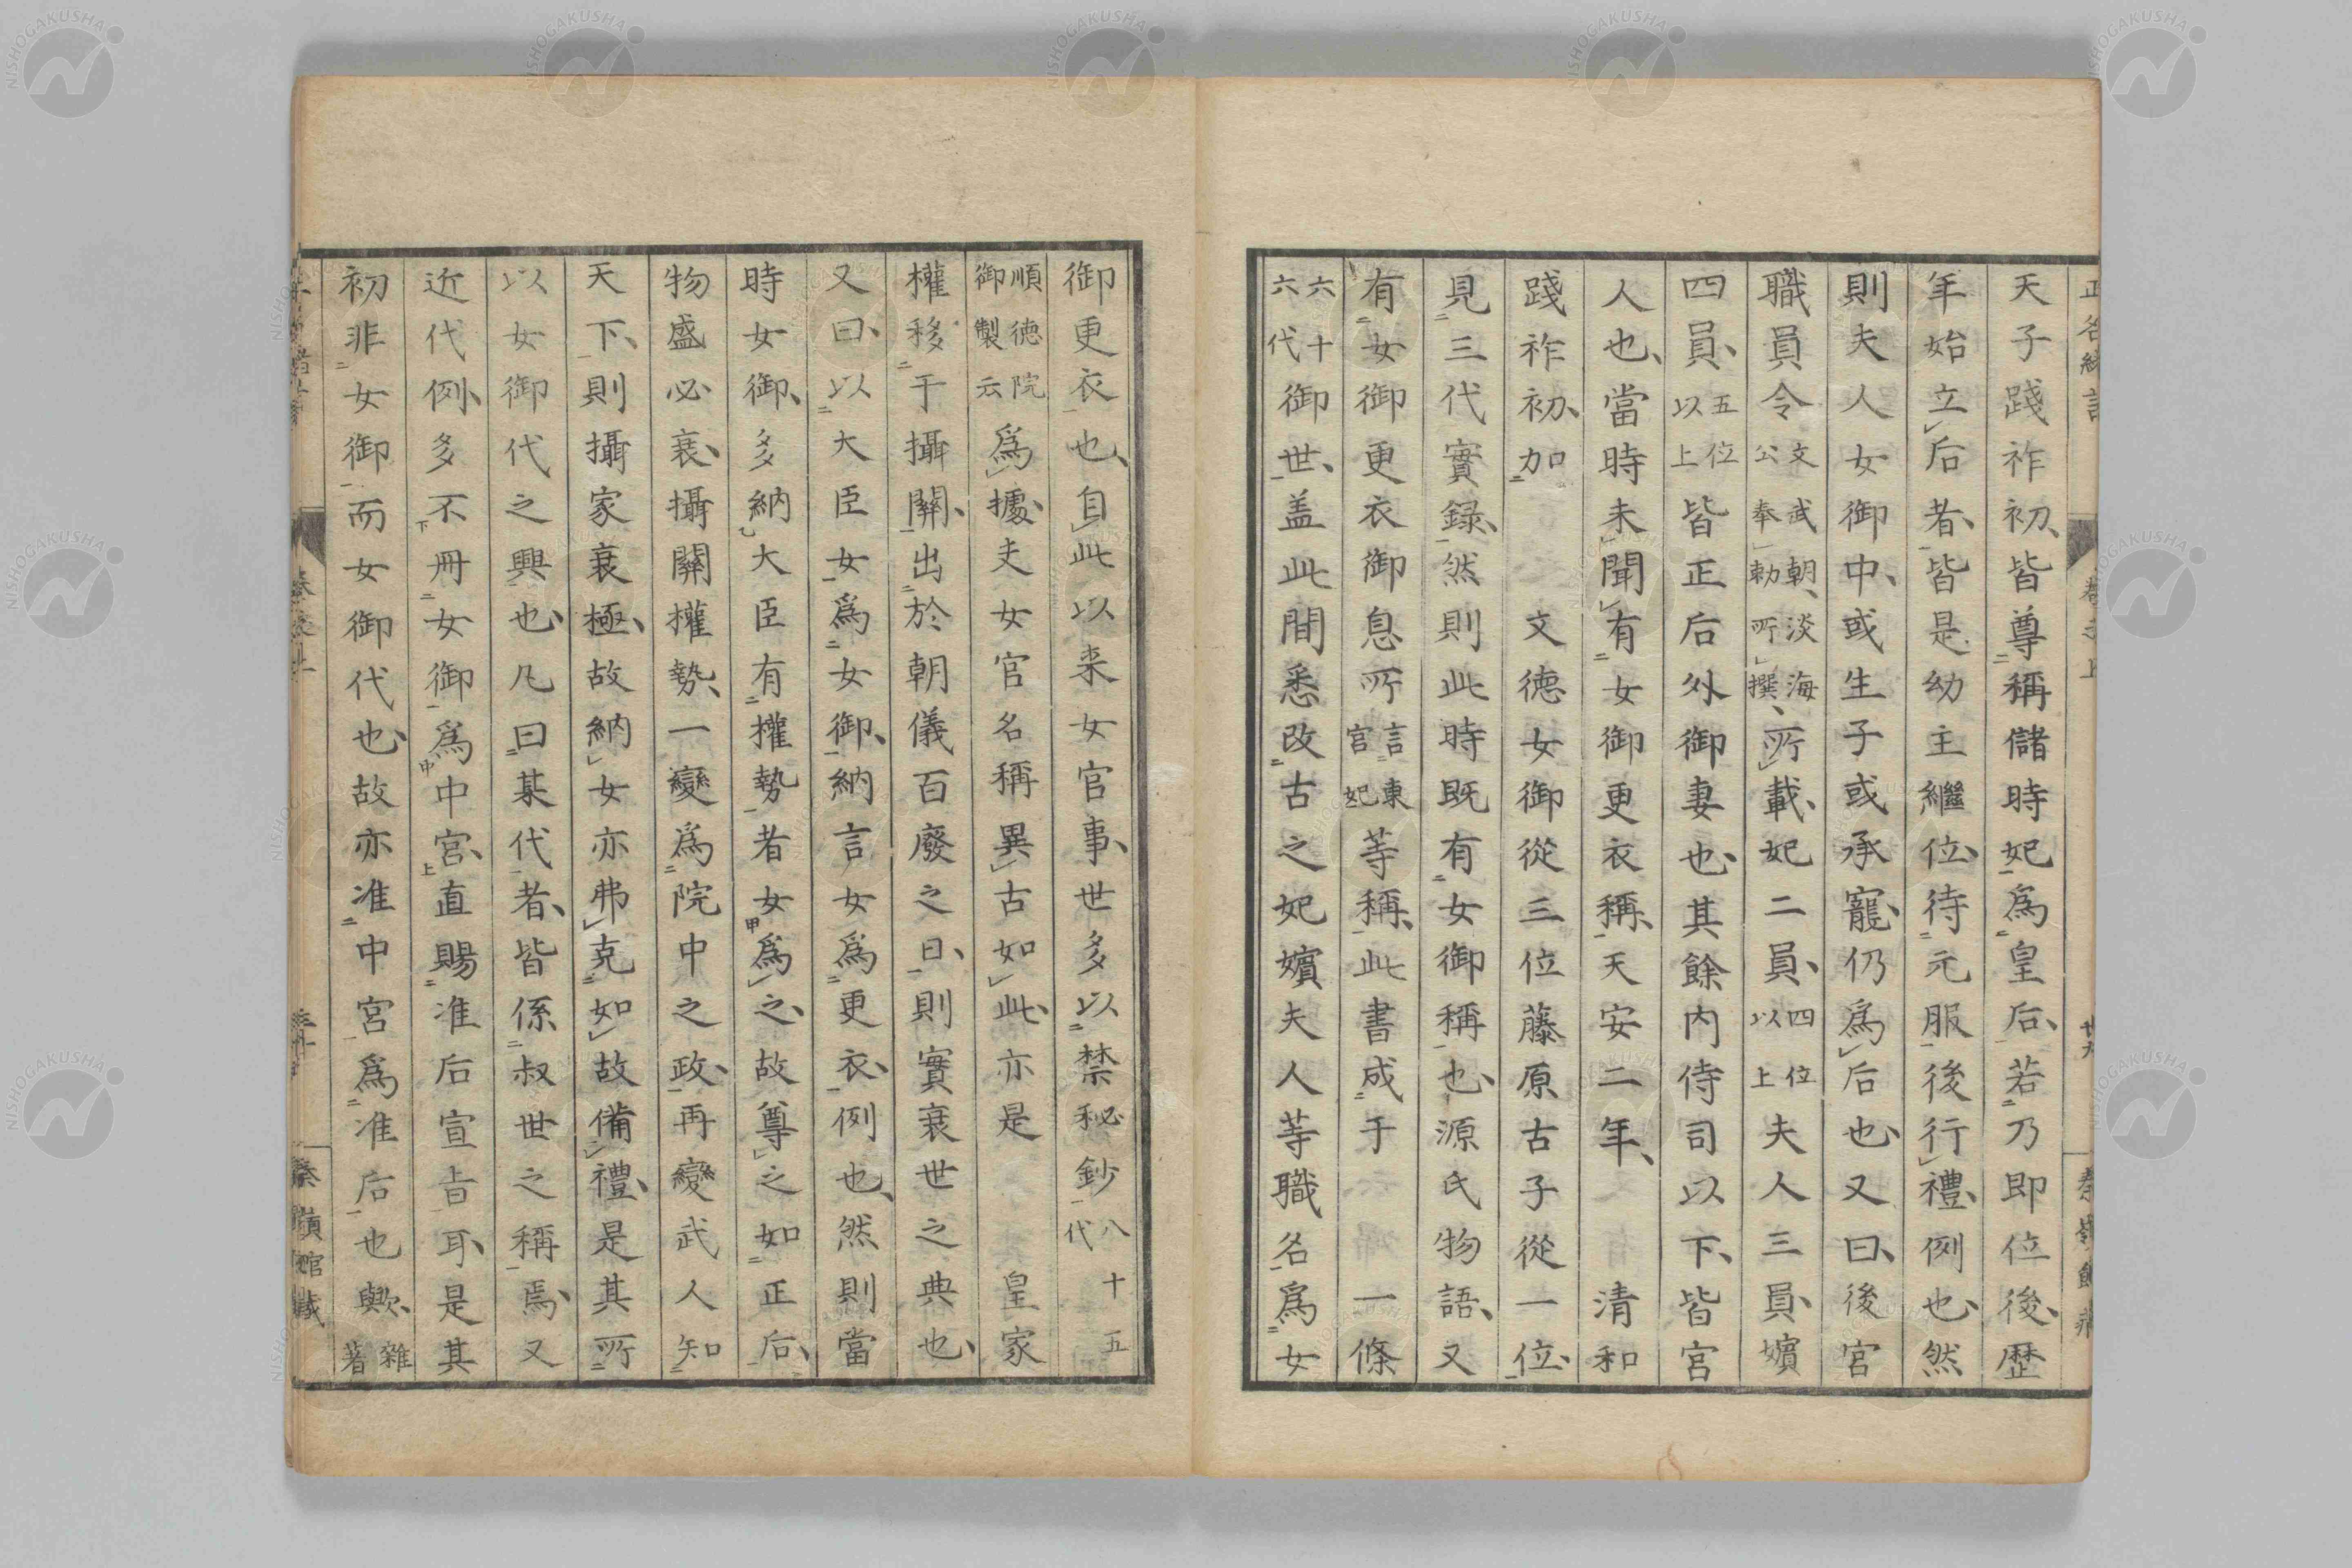 天子踐祚初、皆尊稱儲時妃爲皇后、若乃即位後、歷
年始立后者、皆是幼主繼位、待元服後行禮、例也、然
則夫人女御中、或生子或承寵、仍爲后也、又曰、後宮
職員令文武朝、淡海公奉勅所撰、所載、妃二員、四位以上夫人三員、嬪
四員、五位以上皆正后外御妻也、其餘内侍司以下、皆宮
人也、當時未聞有女御更衣稱、天安二年、　清和
踐祚初、加　文德女御從三位藤原古子從一位、
見三代實録、然則此時既有女御稱也、源氏物語、又
有女御更衣御息所言東宮妃等稱、此書成于　一條
六十六代御世、盖此間悉改古之妃嬪夫人等職名、爲女
御更衣也、自此以来女官事、世多以禁秘鈔八十五代
順德院御製云爲據、夫女官名稱異古如此、亦是　皇家
權移于攝關、出於朝儀百廢之日、則實衰世之典也、
又曰、以大臣女爲女御、納言女爲更衣、例也、然則當
時女御、多納大臣有權勢者女爲之、故尊之如正后、
物盛必衰、攝關權勢、一變爲院中之政、再變武人知
天下、則攝家衰極、故納女亦弗克如故備禮、是其所
以女御代之興也、凡曰某代者、皆係叔世之稱焉、又
近代例、多不冊女御爲中宮、直賜准后宣旨耳、是其
初非女御而女御代也、故亦准中宮爲准后也歟、雜著
NISHOGAKUSHA